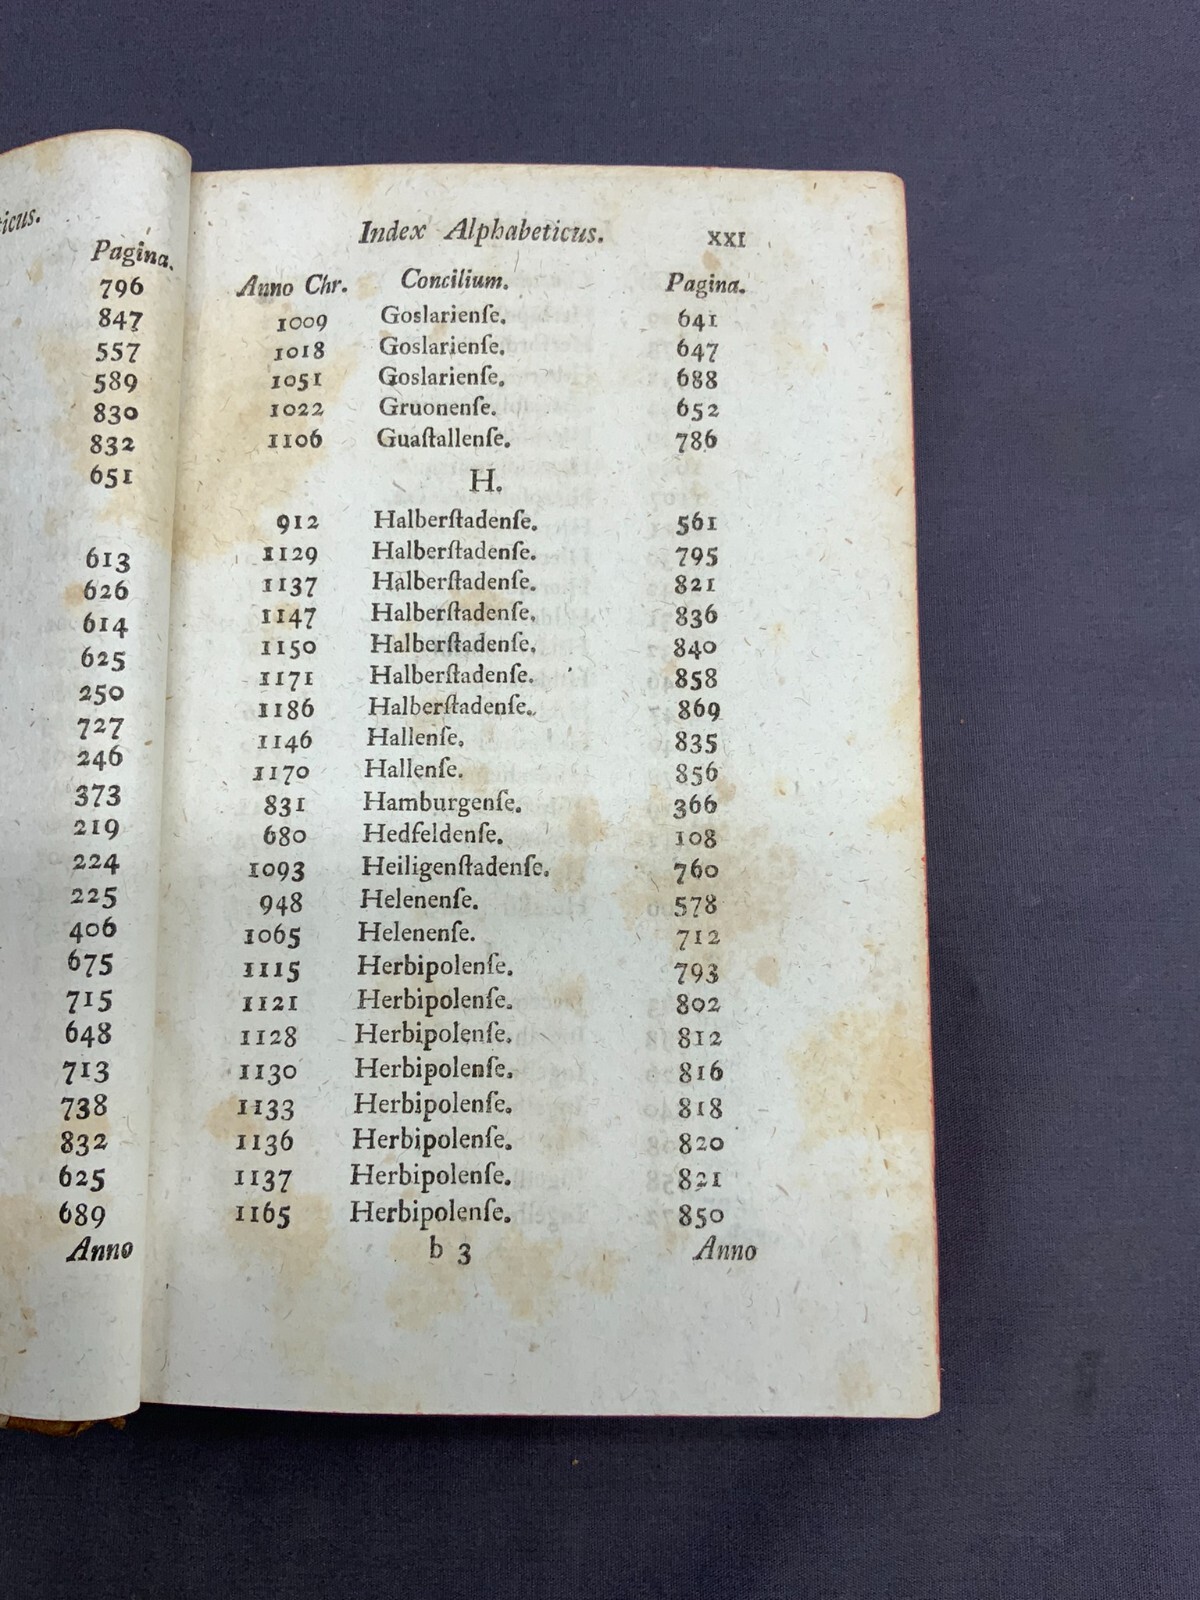 ticus.
Pagina.
796
847
557
589
830
832
651
613
626
614
625
250
727
246
373
219
224
225
406
675
715
648
713
738
832
625
689
Anno
Index Alphabeticus. XXI
Anno Chr. Concilium. Pagina.
1009 Goslarienſe. 641
1018 Goslarienſe. 647
1051 Goslarienſe. 688
1022 Gruonenſe. 652
1106 Guaſtallenſe. 786
H.
912 Halberſtadenſe. 561
1129 Halberſtadenſe. 795
1137 Halberſtadenſe. 821
1147 Halberſtadenſe. 836
1150 Halberſtadenſe. 840
1171 Halberſtadenſe. 858
1186 Halberſtadenſe. 869
1146 Hallenſe. 835
1170 Hallenſe. 856
831 Hamburgenſe. 366
680 Hedfeldenſe. 108
1093 Heiligenſtadenſe. 760
948 Helenenſe. 578
1065 Helenenſe. 712
1115 Herbipolenſe. 793
1121 Herbipolenſe. 802
1128 Herbipolenſe. 812
1130 Herbipolenſe. 816
1133 Herbipolenſe. 818
1136 Herbipolenſe. 820
1137 Herbipolenſe. 821
1165 Herbipolenſe. 850
b 3 Anno